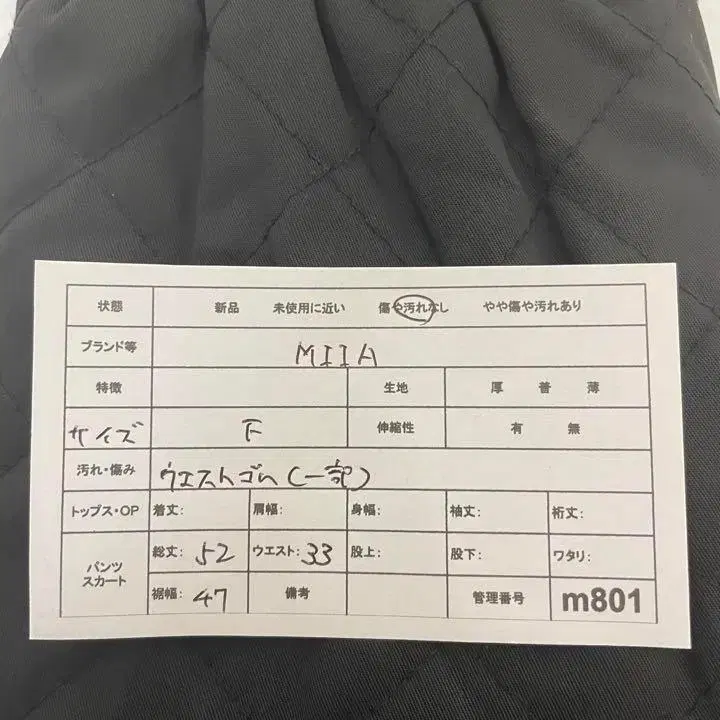 状態 新品 未使用に近い 傷や汚れなし やや傷や汚れあり
ブランド等 MIIA
特徴 生地 厚 普 薄
サイズ F 伸縮性 有 無
汚れ・傷み ウエストゴム(一部)
トップス・OP 着丈: 肩幅: 身幅: 袖丈: 裄丈:
パンツ スカート 総丈: 52 ウエスト: 33 股上: 股下: ワタリ:
裾幅: 47 備考 管理番号 m801